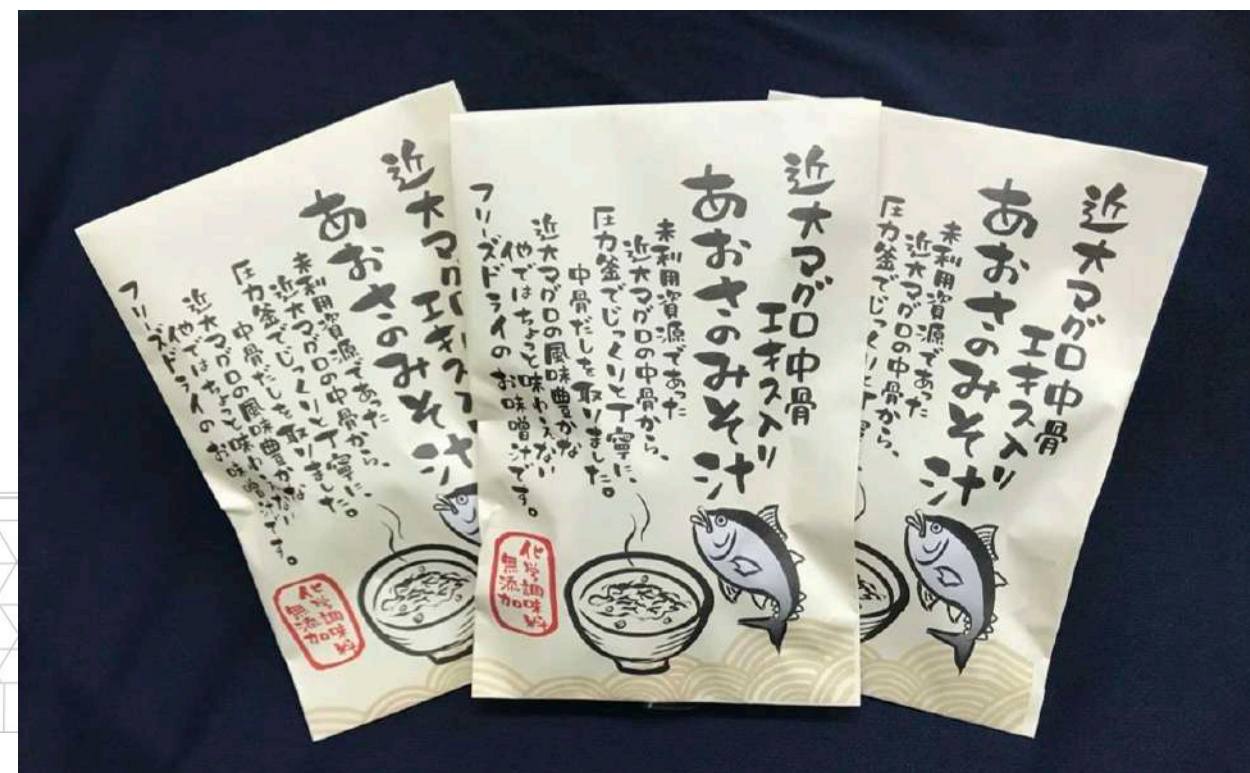 近大マグロ
エキス
あおさのみそ汁
未利用資源であった
近大マグロの中骨から、
圧力釜でじっくりと丁寧に、
中骨だしを取りました。
近大マグロの風味豊かな
他ではちょっと味わえない
フリーズドライのお味噌汁です。
化学調味料
無添加
近大マグロ中骨
エキス入り
あおさのみそ汁
未利用資源であった
近大マグロの中骨から、
圧力釜でじっくりと丁寧に、
中骨だしを取りました。
近大マグロの風味豊かな
他ではちょっと味わえない
フリーズドライのお味噌汁です。
化学調味料
無添加
近大マグロ中骨
エキス入り
あおさのみそ汁
未利用資源であった
近大マグロの中骨から、
圧力釜でじっくりと丁寧